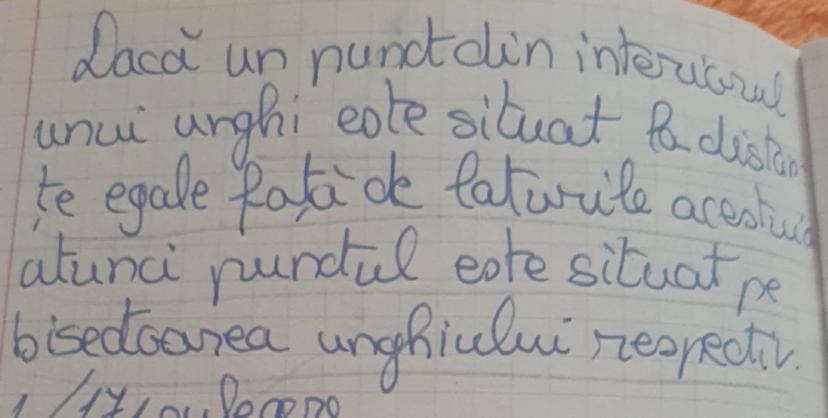 Dacă un punct din interiorul
unui unghi este situat la distan
țe egale față de laturile acestuia
atunci punctul este situat pe
bisectoarea unghiului respectiv.
1/17, culegere